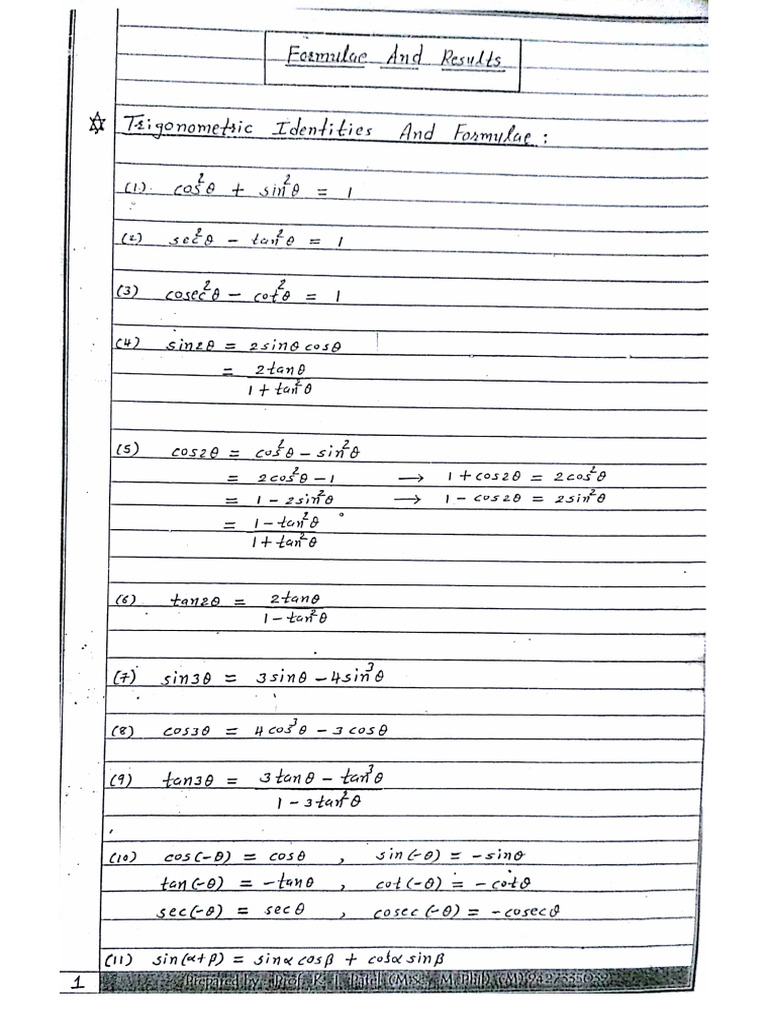 Formulae And Results
☆ Trigonometric Identities And Formulae :
(1). cos²θ + sin²θ = 1
(2) sec²θ − tan²θ = 1
(3) cosec²θ − cot²θ = 1
(4) sin2θ = 2sinθ cosθ
= 2tanθ
1 + tan²θ
(5) cos2θ = cos²θ − sin²θ
= 2cos²θ − 1 → 1 + cos2θ = 2cos²θ
= 1 − 2sin²θ → 1 − cos2θ = 2sin²θ
= 1 − tan²θ
1 + tan²θ
(6) tan2θ = 2tanθ
1 − tan²θ
(7) sin3θ = 3sinθ − 4sin³θ
(8) cos3θ = 4cos³θ − 3cosθ
(9) tan3θ = 3tanθ − tan³θ
1 − 3tan²θ
(10) cos(−θ) = cosθ , sin(−θ) = −sinθ
tan(−θ) = −tanθ , cot(−θ) = −cotθ
sec(−θ) = secθ , cosec(−θ) = −cosecθ
(11) sin(α+β) = sinα cosβ + cosα sinβ
1 Prepared by Prof. K. J. Patel